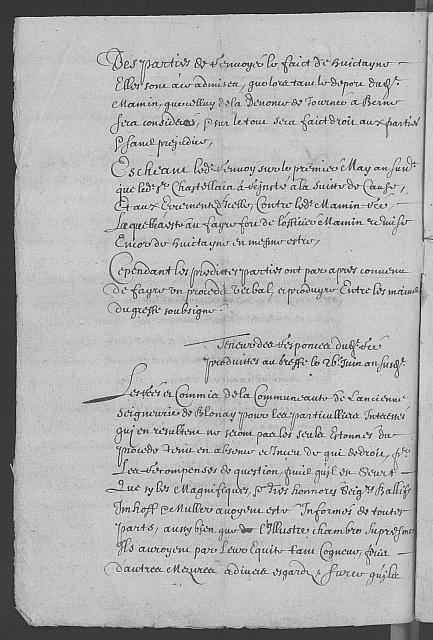 Des parties de renvoyer le faict de huictayne
Elles sont
Mamin, que celluy de la Denonce de Tournee à Berne
sera considéré, & sur le tout sera faict droit aux parties
& sans prejudice,
Escheant led. renvoy sur le premier May an susd.
que led. Sr. Chastellain à la suite de Cause,
Et aux Contre led. Mamin
La quelle a esté au fayre fort de l'officier Mamin
Encor de huictayne en mesme estre,
Cependant les predittes parties ont par apres convenu
de fayre un procede verbal, et produyre Entre les mains
du greffe soubsigné.
Teneur des responces
produittes au greffe le 26. Juin an susd.
Les et Commis de la Communauté de L'ancienne
Seigneurie de Blonay pour les particulliers Interessés
qui en resultent ne seront pas les seuls Estonnes du
procede tenu en absence et de qui de droit,
Les recompenses de question, puis qu'il en
Que sy les Magnifiques, & tres honnores Seigrs. Ballifs
Imhoff & Muller avoyent esté Informes de toutes
parts, aussy bien que l'Illustre chambre Supresme
Ils auroyent par Leur Equité tant Cogneue,
d'autres Mesures a divers esgards, sur ce qu'ils